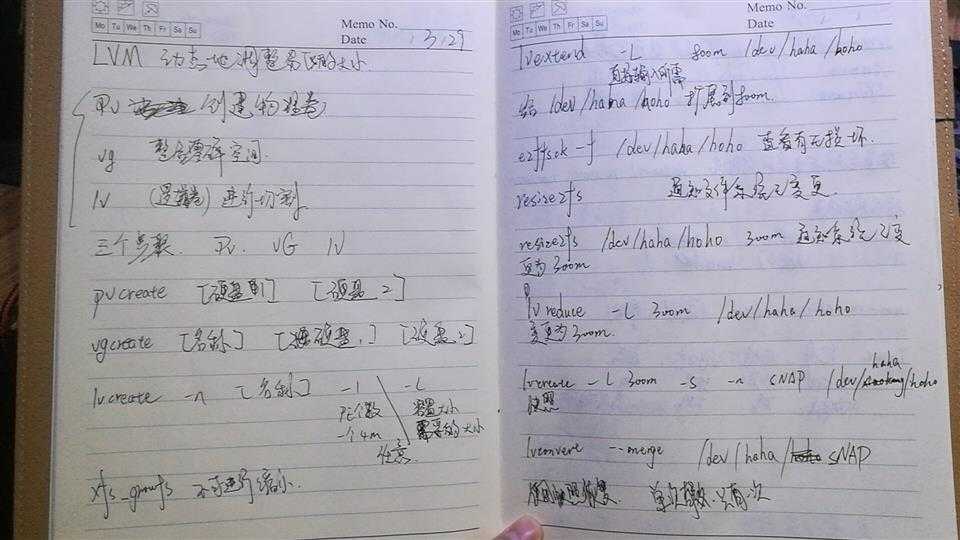 Mo Tu We Th Fr Sa Su
Memo No.
Date 3.29
LVM 动态地调整易区的大小
PV 创建物理卷
vg 整合零碎空间.
lv (逻辑卷) 进行切割
三个步骤. PV. VG lV
pvcreate [硬盘1] [硬盘2]
vgcreate [名称] [硬盘1] [硬盘2]
lvcreate -n [名称] -l \ -L
PE个数 容量大小
一个4m 需要的大小
任意
xfs_growfs 不可进行缩小.
Mo Tu We Th Fr Sa Su
Memo No.
Date
lvextend -L 800m /dev/haha/hoho
直接输入所需
给 /dev/haha/hoho 扩展到800m.
e2ffsck -f /dev/haha/hoho 查看有无损坏.
resize2fs 通知文件系统已变更.
resize2fs /dev/haha/hoho 300m 通知系统已变
更为300m
lvreduce -L 300m /dev/haha/hoho
变更为300m.
haha
lvcreate -L 300m -s -n SNAP /dev/ /hoho
快照
lvconvere --merge /dev/haha/ SNAP
快照恢复. 单次 只有一次